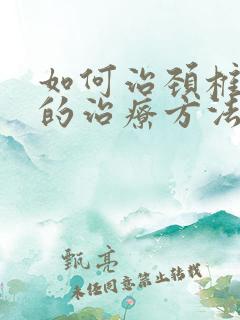 如何治颈椎
的治疗方法
甄亮
未经同意禁止转载